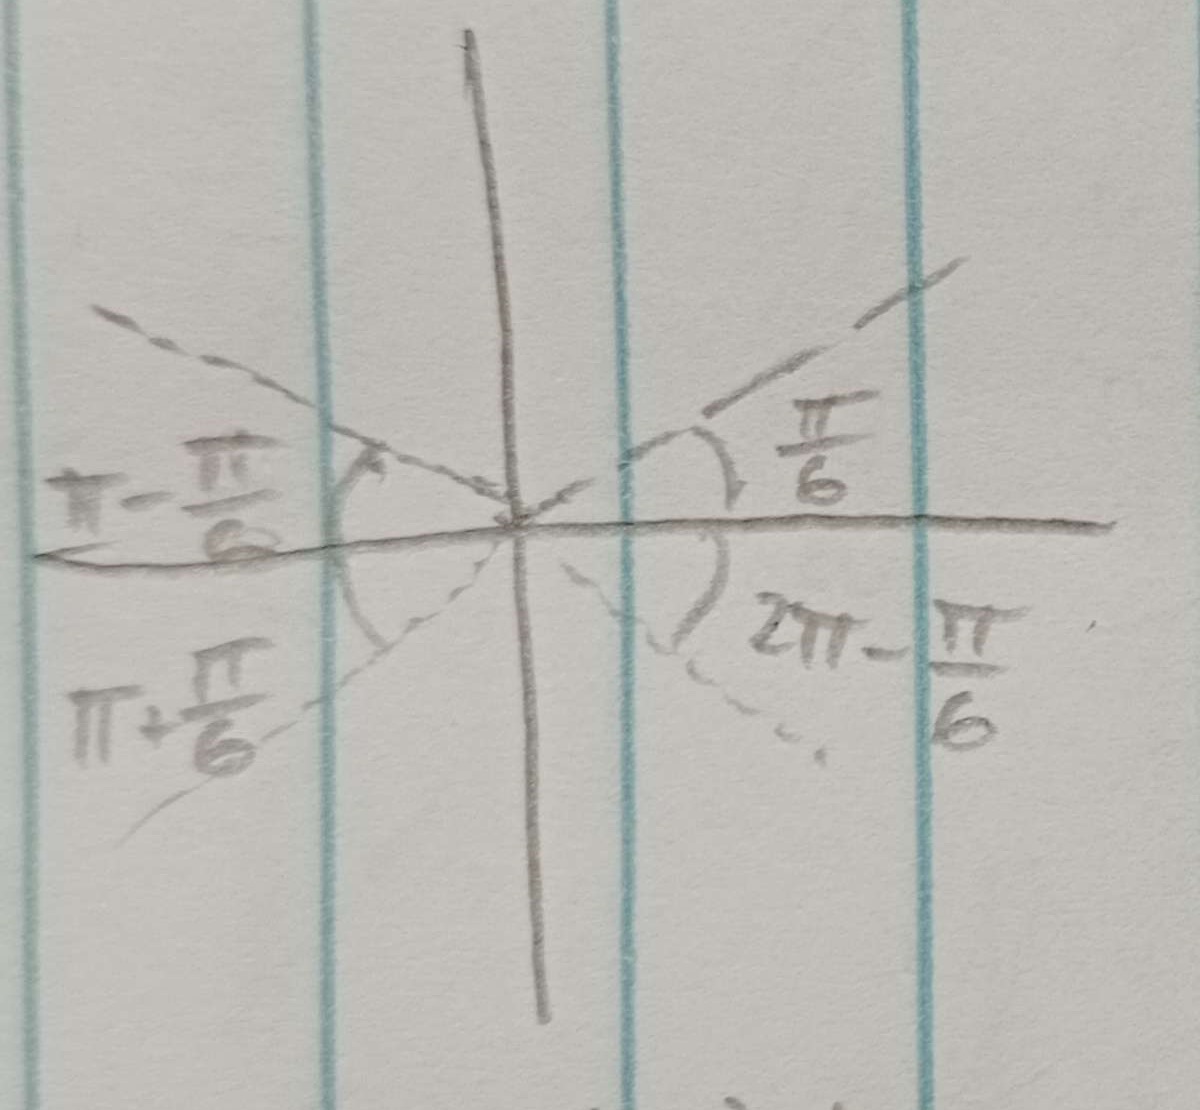 π/6
π - π/6
π + π/6
2π - π/6